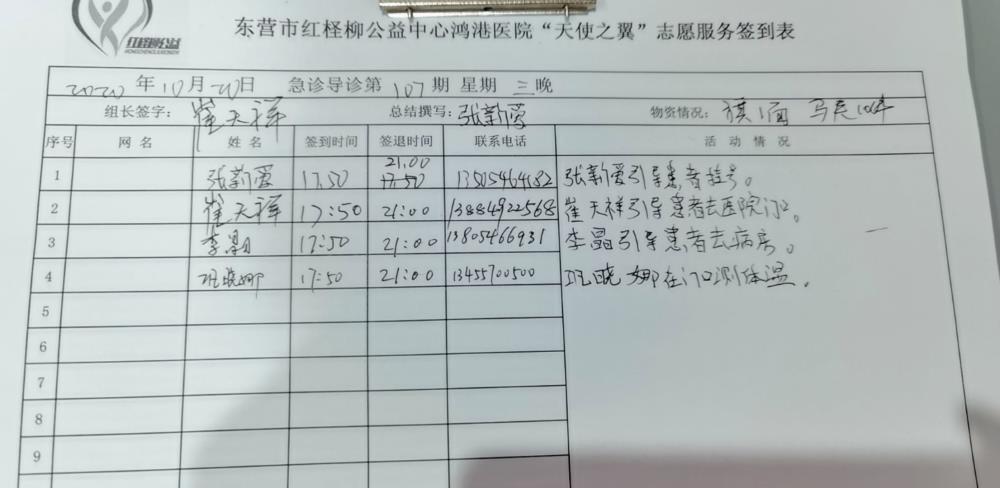 红柽柳公益
东营市红柽柳公益中心鸿港医院“天使之翼”志愿服务签到表
2020 年 10 月 20 日 急诊导诊第 107 期 星期 三晚
组长签字: 崔天祥 总结撰写: 张新爱 物资情况: 旗1面 马甲10件
序号 网名 姓名 签到时间 签退时间 联系电话 活动情况
1 张新爱 17.50 17:50 21.00 13505464182 张新爱引导患者挂号。
2 崔天祥 17:50 21:00 13884922568 崔天祥引导患者去医院门口。
3 李晶 17:50 21:00 13805466931 李晶引导患者去病房。
4 班晓娜 17:50 21:00 13455700500 班晓娜在门口测体温.
5
6
7
8
9